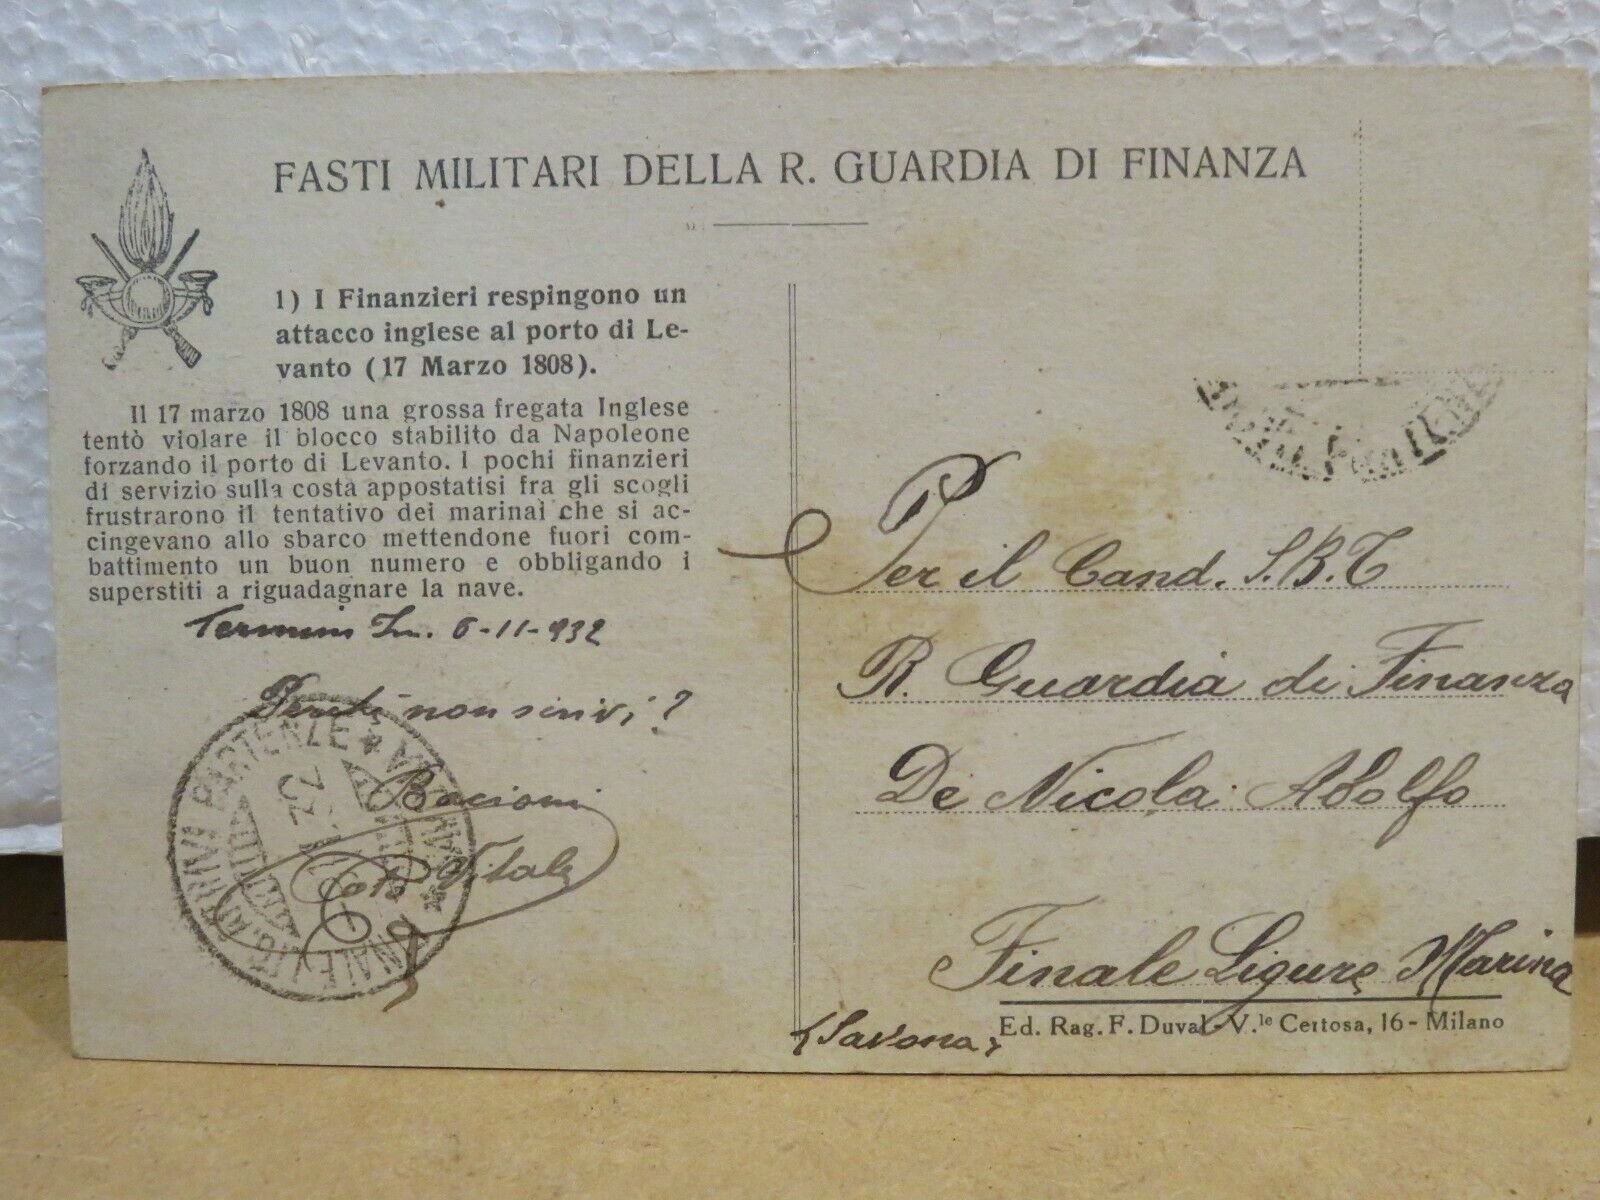 FASTI MILITARI DELLA R. GUARDIA DI FINANZA
1) I Finanzieri respingono un
attacco inglese al porto di Le-
vanto (17 Marzo 1808).
Il 17 marzo 1808 una grossa fregata Inglese
tentò violare il blocco stabilito da Napoleone
forzando il porto di Levanto. I pochi finanzieri
di servizio sulla costa appostatisi fra gli scogli
frustrarono il tentativo dei marinai che si ac-
cingevano allo sbarco mettendone fuori com-
battimento un buon numero e obbligando i
superstiti a riguadagnare la nave.
Termini Im. 6-11-932
Perché non scrivi?
Bacioni
Vitale
ARRIVI PARTENZE
Per il Cand. S.B.T
R. Guardia di Finanza
De Nicola Adolfo
Finale Ligure Marina
(Savona)
Ed. Rag. F. Duval - V.le Certosa, 16 - Milano